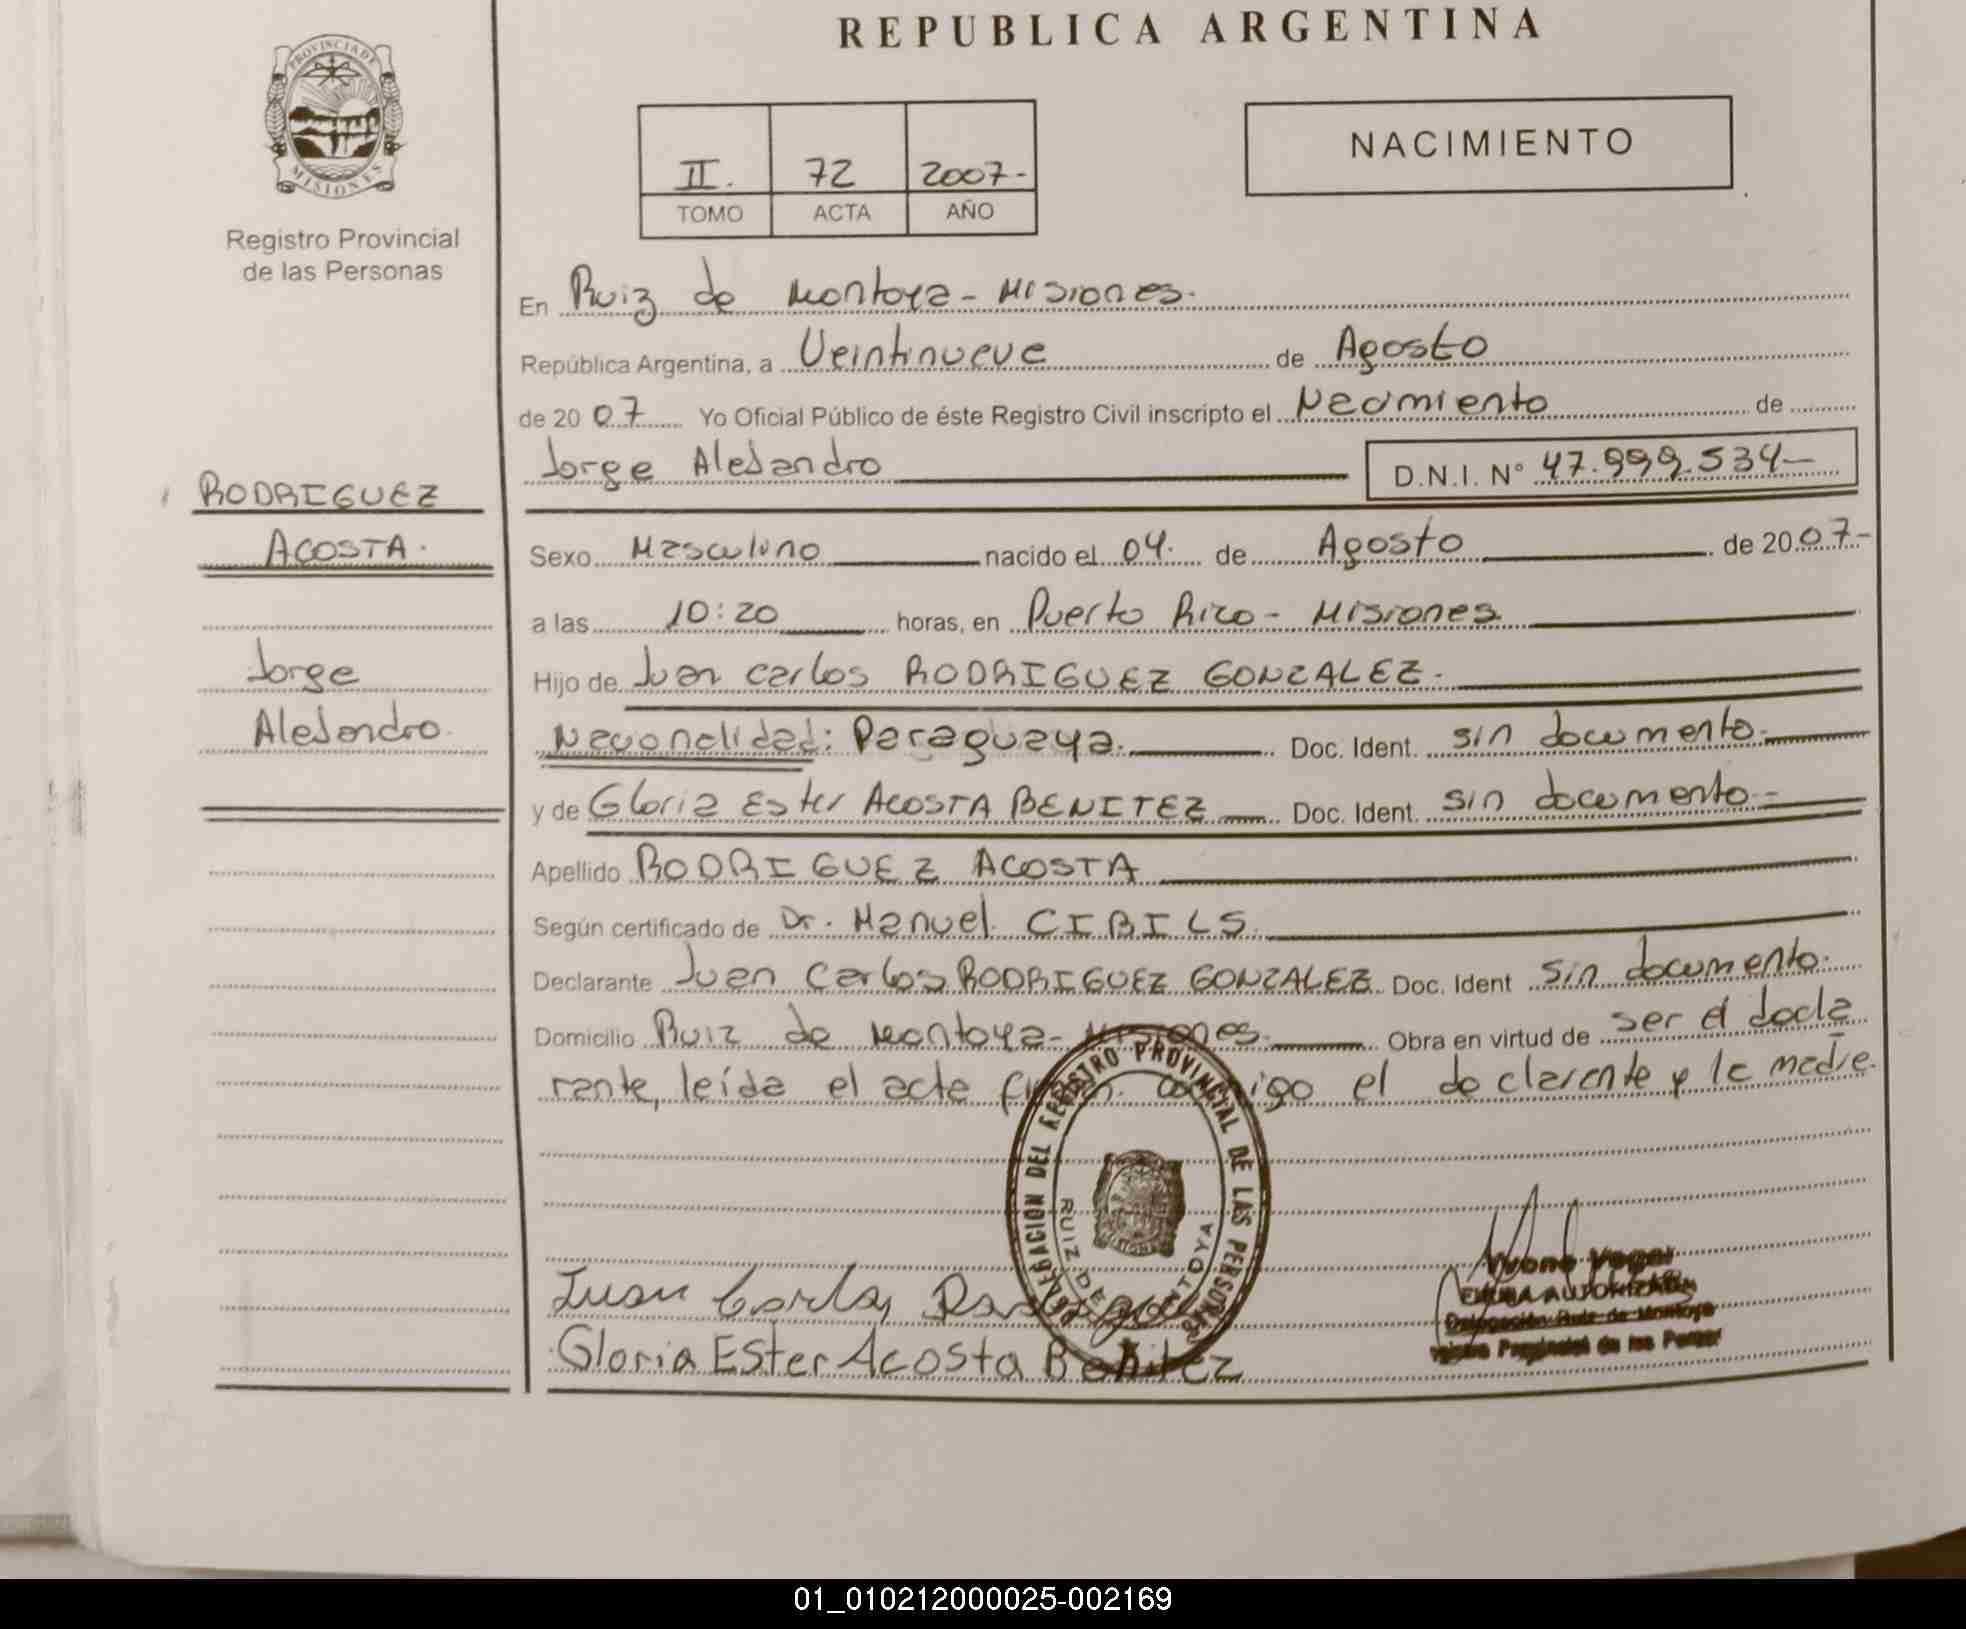 REPUBLICA ARGENTINA
PROVINCIA DE
MISIONES
Registro Provincial
de las Personas
II. 72 2007-
TOMO ACTA AÑO
NACIMIENTO
En Ruiz de Montoya - Misiones.
República Argentina, a Veintinueve de Agosto
de 2007 Yo Oficial Público de éste Registro Civil inscripto el Nacimiento de
Jorge Alejandro D.N.I. N° 47.999.534-
RODRIGUEZ
ACOSTA.
Jorge
Alejandro.
Sexo Masculino nacido el 04. de Agosto de 2007-
a las 10:20 horas, en Puerto Rico - Misiones
Hijo de Juan Carlos RODRIGUEZ GONZALEZ.
Nacionalidad: Paraguaya. Doc. Ident. sin documento.
y de Gloria Ester ACOSTA BENITEZ Doc. Ident. sin documento-
Apellido RODRIGUEZ ACOSTA
Según certificado de Dr. Manuel CIBILS.
Declarante Juan Carlos RODRIGUEZ GONZALEZ Doc. Ident sin documento.
Domicilio Ruiz de Montoya- Misiones. Obra en virtud de ser el decla
rante, leída el acta firman conmigo el declarante y la madre.
DELEGACION DEL REGISTRO PROVINCIAL DE LAS PERSONAS
RUIZ DE MONTOYA
Juan Carlos
Gloria Ester Acosta Benitez
AUTORIZADA
Delegación Ruiz de Montoya
Provincial de las
01_010212000025-002169